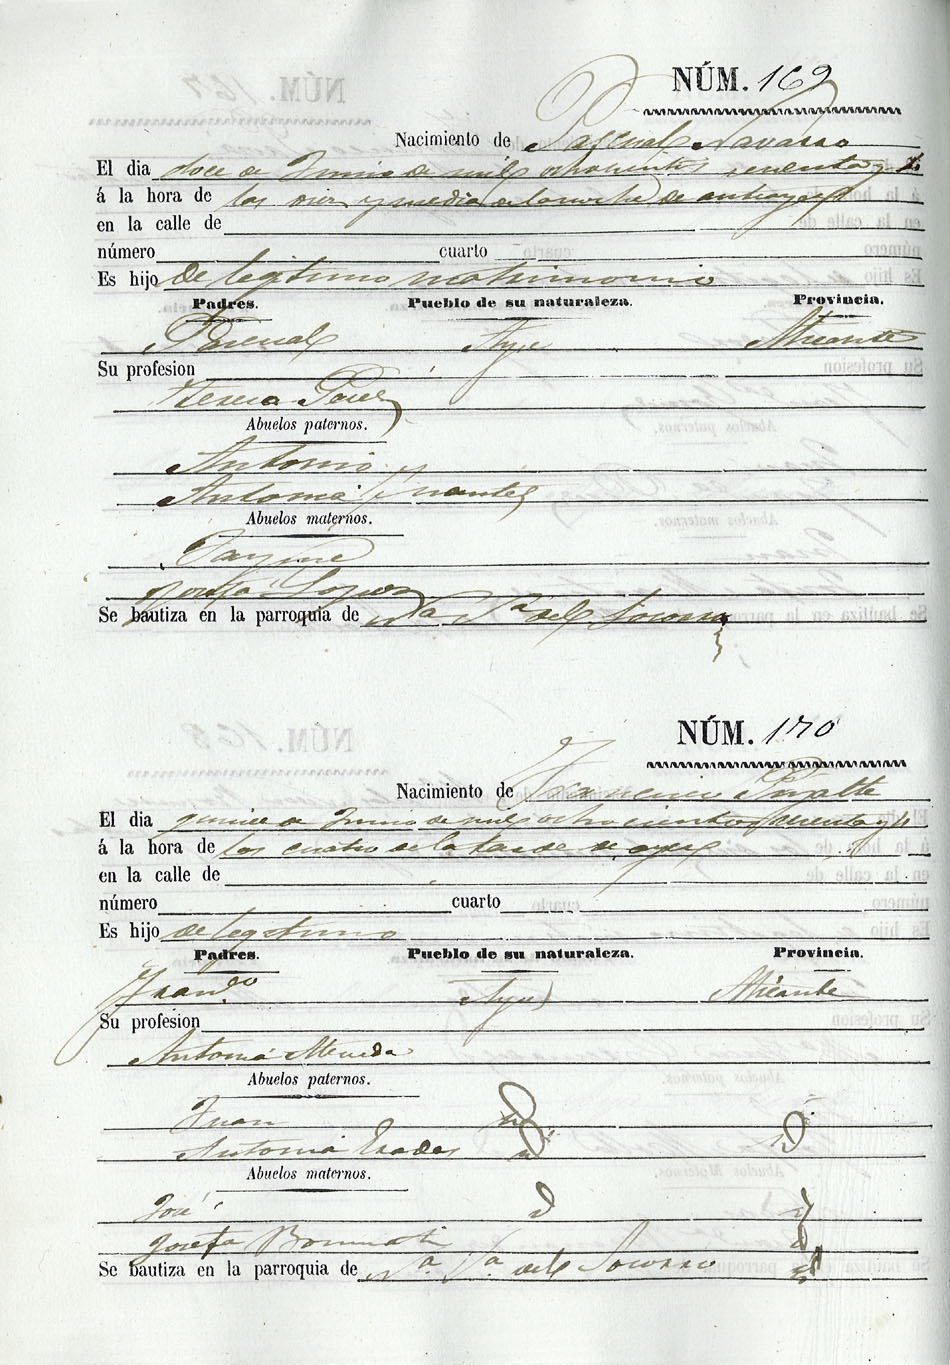 NÚM. 169
Nacimiento de Pascual Navarro
El dia doce de Junio de mil ochocientos setenta y
á la hora de las once y media de la noche de antayer
en la calle de
número cuarto
Es hijo de legitimo matrimonio
Padres. Pueblo de su naturaleza. Provincia.
Pascual Aspe Alicante
Su profesion
Teresa Perez
Abuelos paternos.
Antonio
Antonia
Abuelos maternos.
Jayme
Josefa Lopez
Se bautiza en la parroquia de Ntª Sª del Socorro
NÚM. 170
Nacimiento de Francisco
El dia quince de Junio de mil ochocientos setenta y
á la hora de las cuatro de la tarde de ayer
en la calle de
número cuarto
Es hijo de legitimo
Padres. Pueblo de su naturaleza. Provincia.
Franco Aspe Alicante
Su profesion
Antonia Almeda
Abuelos paternos.
Juan
Antonia
Abuelos maternos.
José
Josefa
Se bautiza en la parroquia de Nª Sª del Socorro